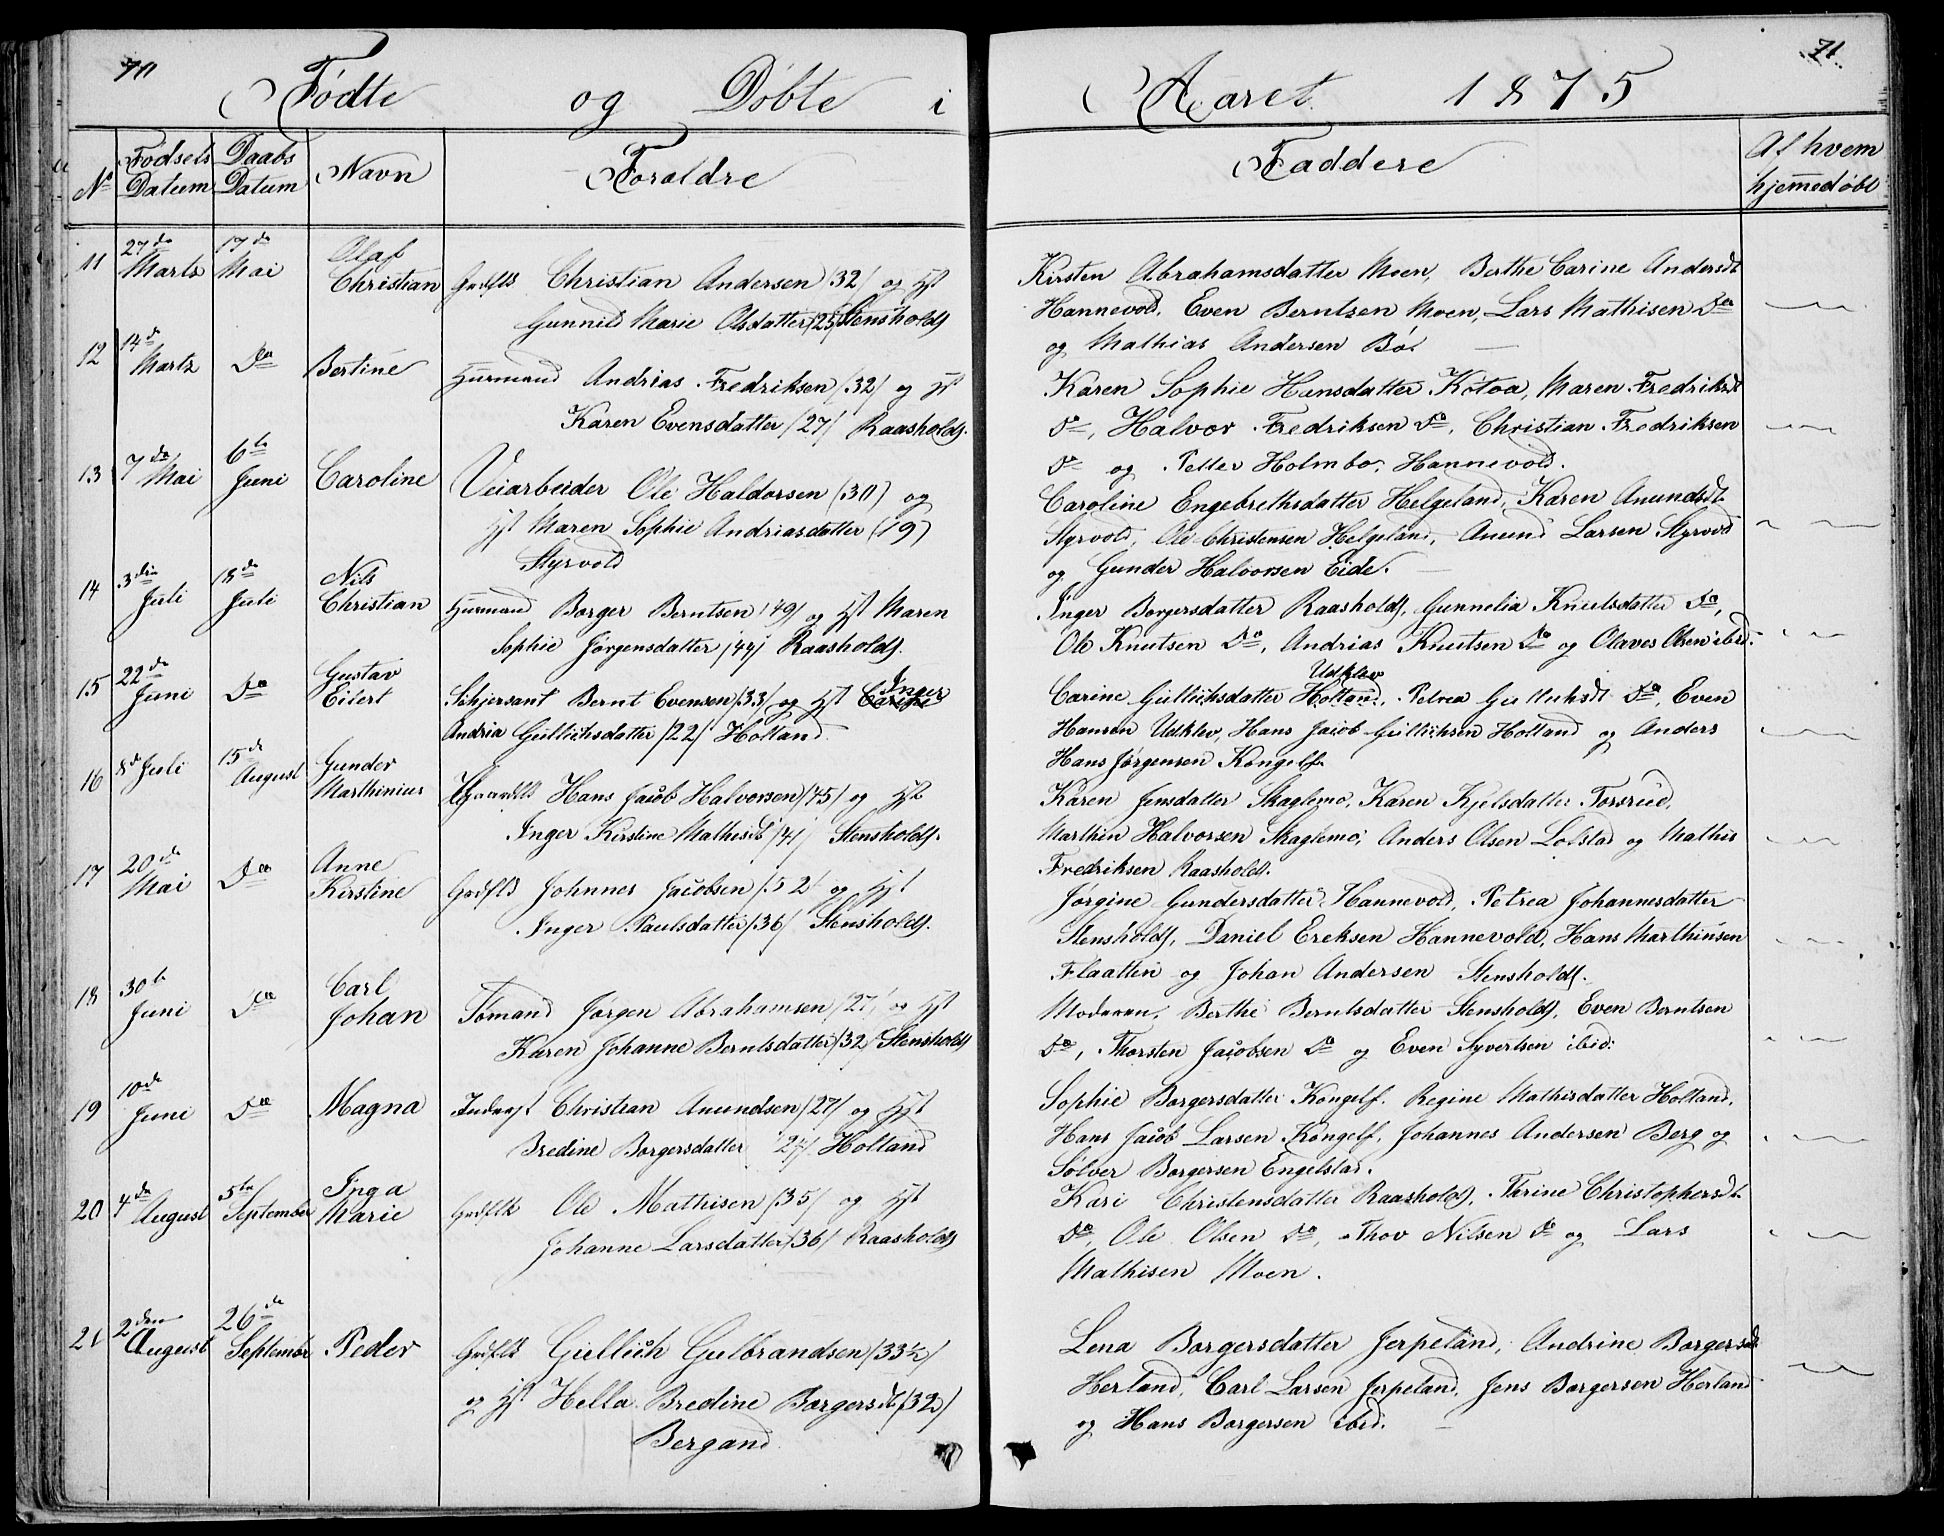 70
Fødte og Døbte i
No
Fødsels Datum
Daabs Datum
Navn
Foraldre
11 27de Marts 17de Mai Olaf Christian Grdfl: Christian Andersen /32/ og Hst
Gunnild Marie Olsdatter /25/ Stensholdt
12 14de Marts Do Bertine Huusmand Andrias Fredriksen /32/ og Hst
Karen Evensdatter /27/ Raasholdt.
13 7de Mai 6te Juni Caroline Veiarbeider Ole Haldorsen (30) og
Hst Maren Sophie Andriasdatter (19)
Styrvold
14 3die Juli 18de Juli Nils Christian Huusmand Borger Berntsen /49/ og Hst Maren
Sophie Jørgensdatter /44/ Raasholdt.
15 22de Juni Do Gustav Eilert Bernt Evensen /33/ og Hst Carine Inger
Andria Gullichsdatter /22/ Holtand
16 8de Juli 15de August Gunder Marthinius Hans Jacob Halvorsen /45/ og Hst
Inger Kirstine Mathisdt /41/ Stensholdt.
17 20de Mai Do Anne Kirstine Grdfl: Johnnes Jacobsen /52/ og Hst
Inger Paulsdatter /36/ Stensholdt.
18 30te Juni Do Carl Johan Sømand Jørgen Abrahamsen /27/ og Hst
Karen Johanne Berntsdatter /32/ Stensholdt
19 10de Juni Do Magna Inderst Christian Anundsen /27/ og Hst
Bredine Borgersdatter /27/ Holtand
20 4de August 5te September Inga Marie Grdfl: Ole Mathisen /35/ og Hst
Johanne Larsdatter /36/ Raasholdt
21 2den August 26de September Peder Grdfl: Gullich Gulbrandsen /33½/
og Hst Hella Bredine Borgersdt /32/
Bergand
71
Aaret 1875
Faddere
Af hvem hjemedøbt
Kirsten Abrahamsdatter Moen, Berthe Carine Andersdt
Hannevold, Even Berntsen Moen, Lars Mathisen Do
og Mathias Andersen Bø.
Karen Sophie Hansdatter Kotoa, Maren Fredriksdt
Do, Halvor Fredriksen Do, Christian Fredriksen
Do og Petter Holmbo, Hannevold.
Caroline Engebrethsdatter Helgeland, Karen Anundsdt
Styrvold, Ole Christensen Helgeland, Anund Larsen Styrvold
og Gunder Halvorsen Eide.
Inger Borgersdatter Raasholdt, Gunnelia Knutsdatter Do,
Ole Knutsen Do, Andrias Knutsen Do og Olaves Olsen ibid.
Carine Gullichsdatter Holtand Udklev, Petrea Gullichsdt Do, Even
Hansen Udklev, Hans Jacob Gullichsen Holtand og Anders
Hans Jørgensen Kongelf.
Karen Jensdatter Skaglemo, Karen Kjelsdatter Torsrud,
Marthin Halvorsen Skaglemo, Anders Olsen Lofstad og Mathis
Fredriksen Raasholdt.
Jørgine Gundersdatter Hannevold, Petrea Johannesdatter
Stensholdt, Daniel Ereksen Hannevold, Hans Marthinsen
Flaatten og Johan Andersen Stensholdt.
Moderen, Berthe Berntsdatter Stensholdt, Even Berntsen
Do, Thorsten Jacobsen Do og Even Syvertsen ibid:
Sophie Borgersdatter Kongelf. Regine Mathisdatter Holtand.
Hans Jacob Larsen Kongelf, Johannes Andersen Berg og
Sølver Borgersen Engelstad.
Kari Christensdatter Raasholdt, Thrine Christophersdt
Do, Ole Olsen Do, Thov Nilsen Do og Lars
Mathisen Moen.
Lena Borgersdatter Jerpeland, Andrine Borgersdt
Herland, Carl Larsen Jerpeland, Jens Borgersen Herland
og Hans Borgersen ibid.